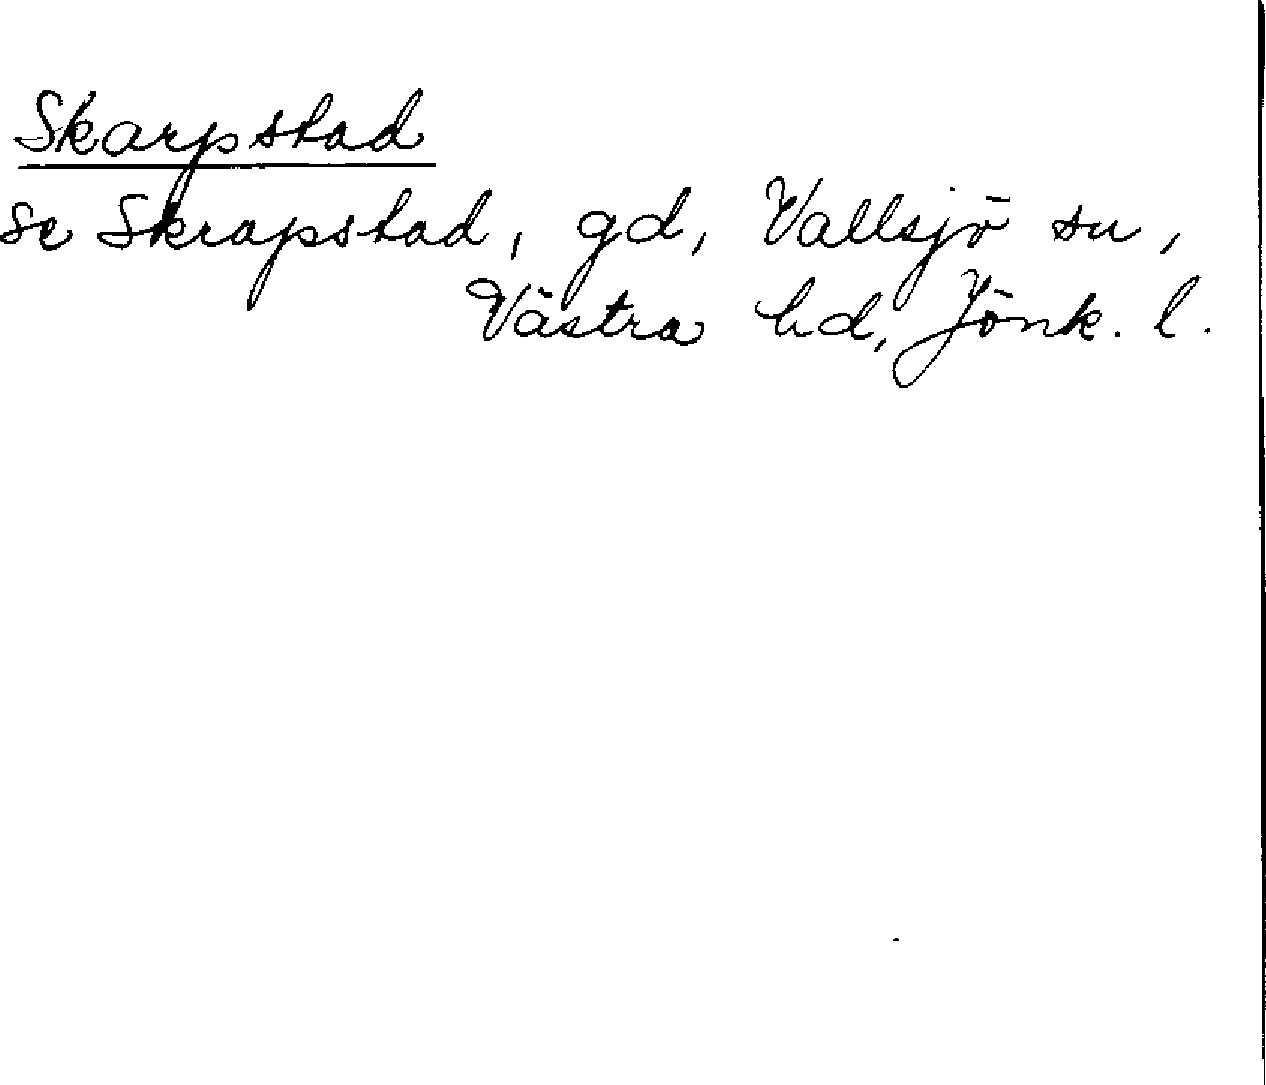 Skarpstad
se Skrapstad, gd, Vallsjö sn,
Västra hd, Jönk. l.